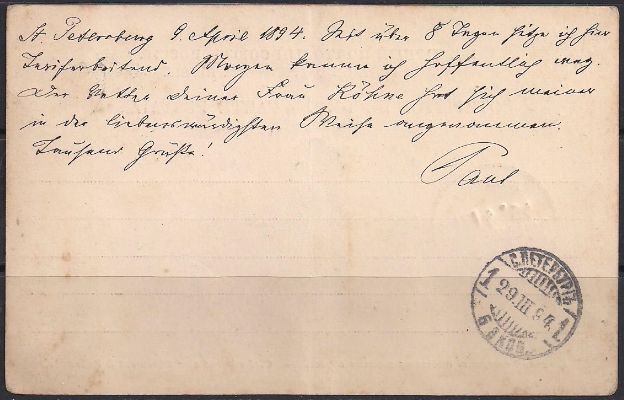 St. Petersburg 9. April 1894. Seit über 8 Tagen sitze ich hier
Tariferbeitend. Morgen komme ich hoffentlich weg.
Der Vetter deiner Frau Köhne hat sich meiner
in der liebenswürdigsten Weise angenommen.
Tausend Grüße!
Paul
С.ПЕТЕРБУРГЪ
1 29 III 94 1